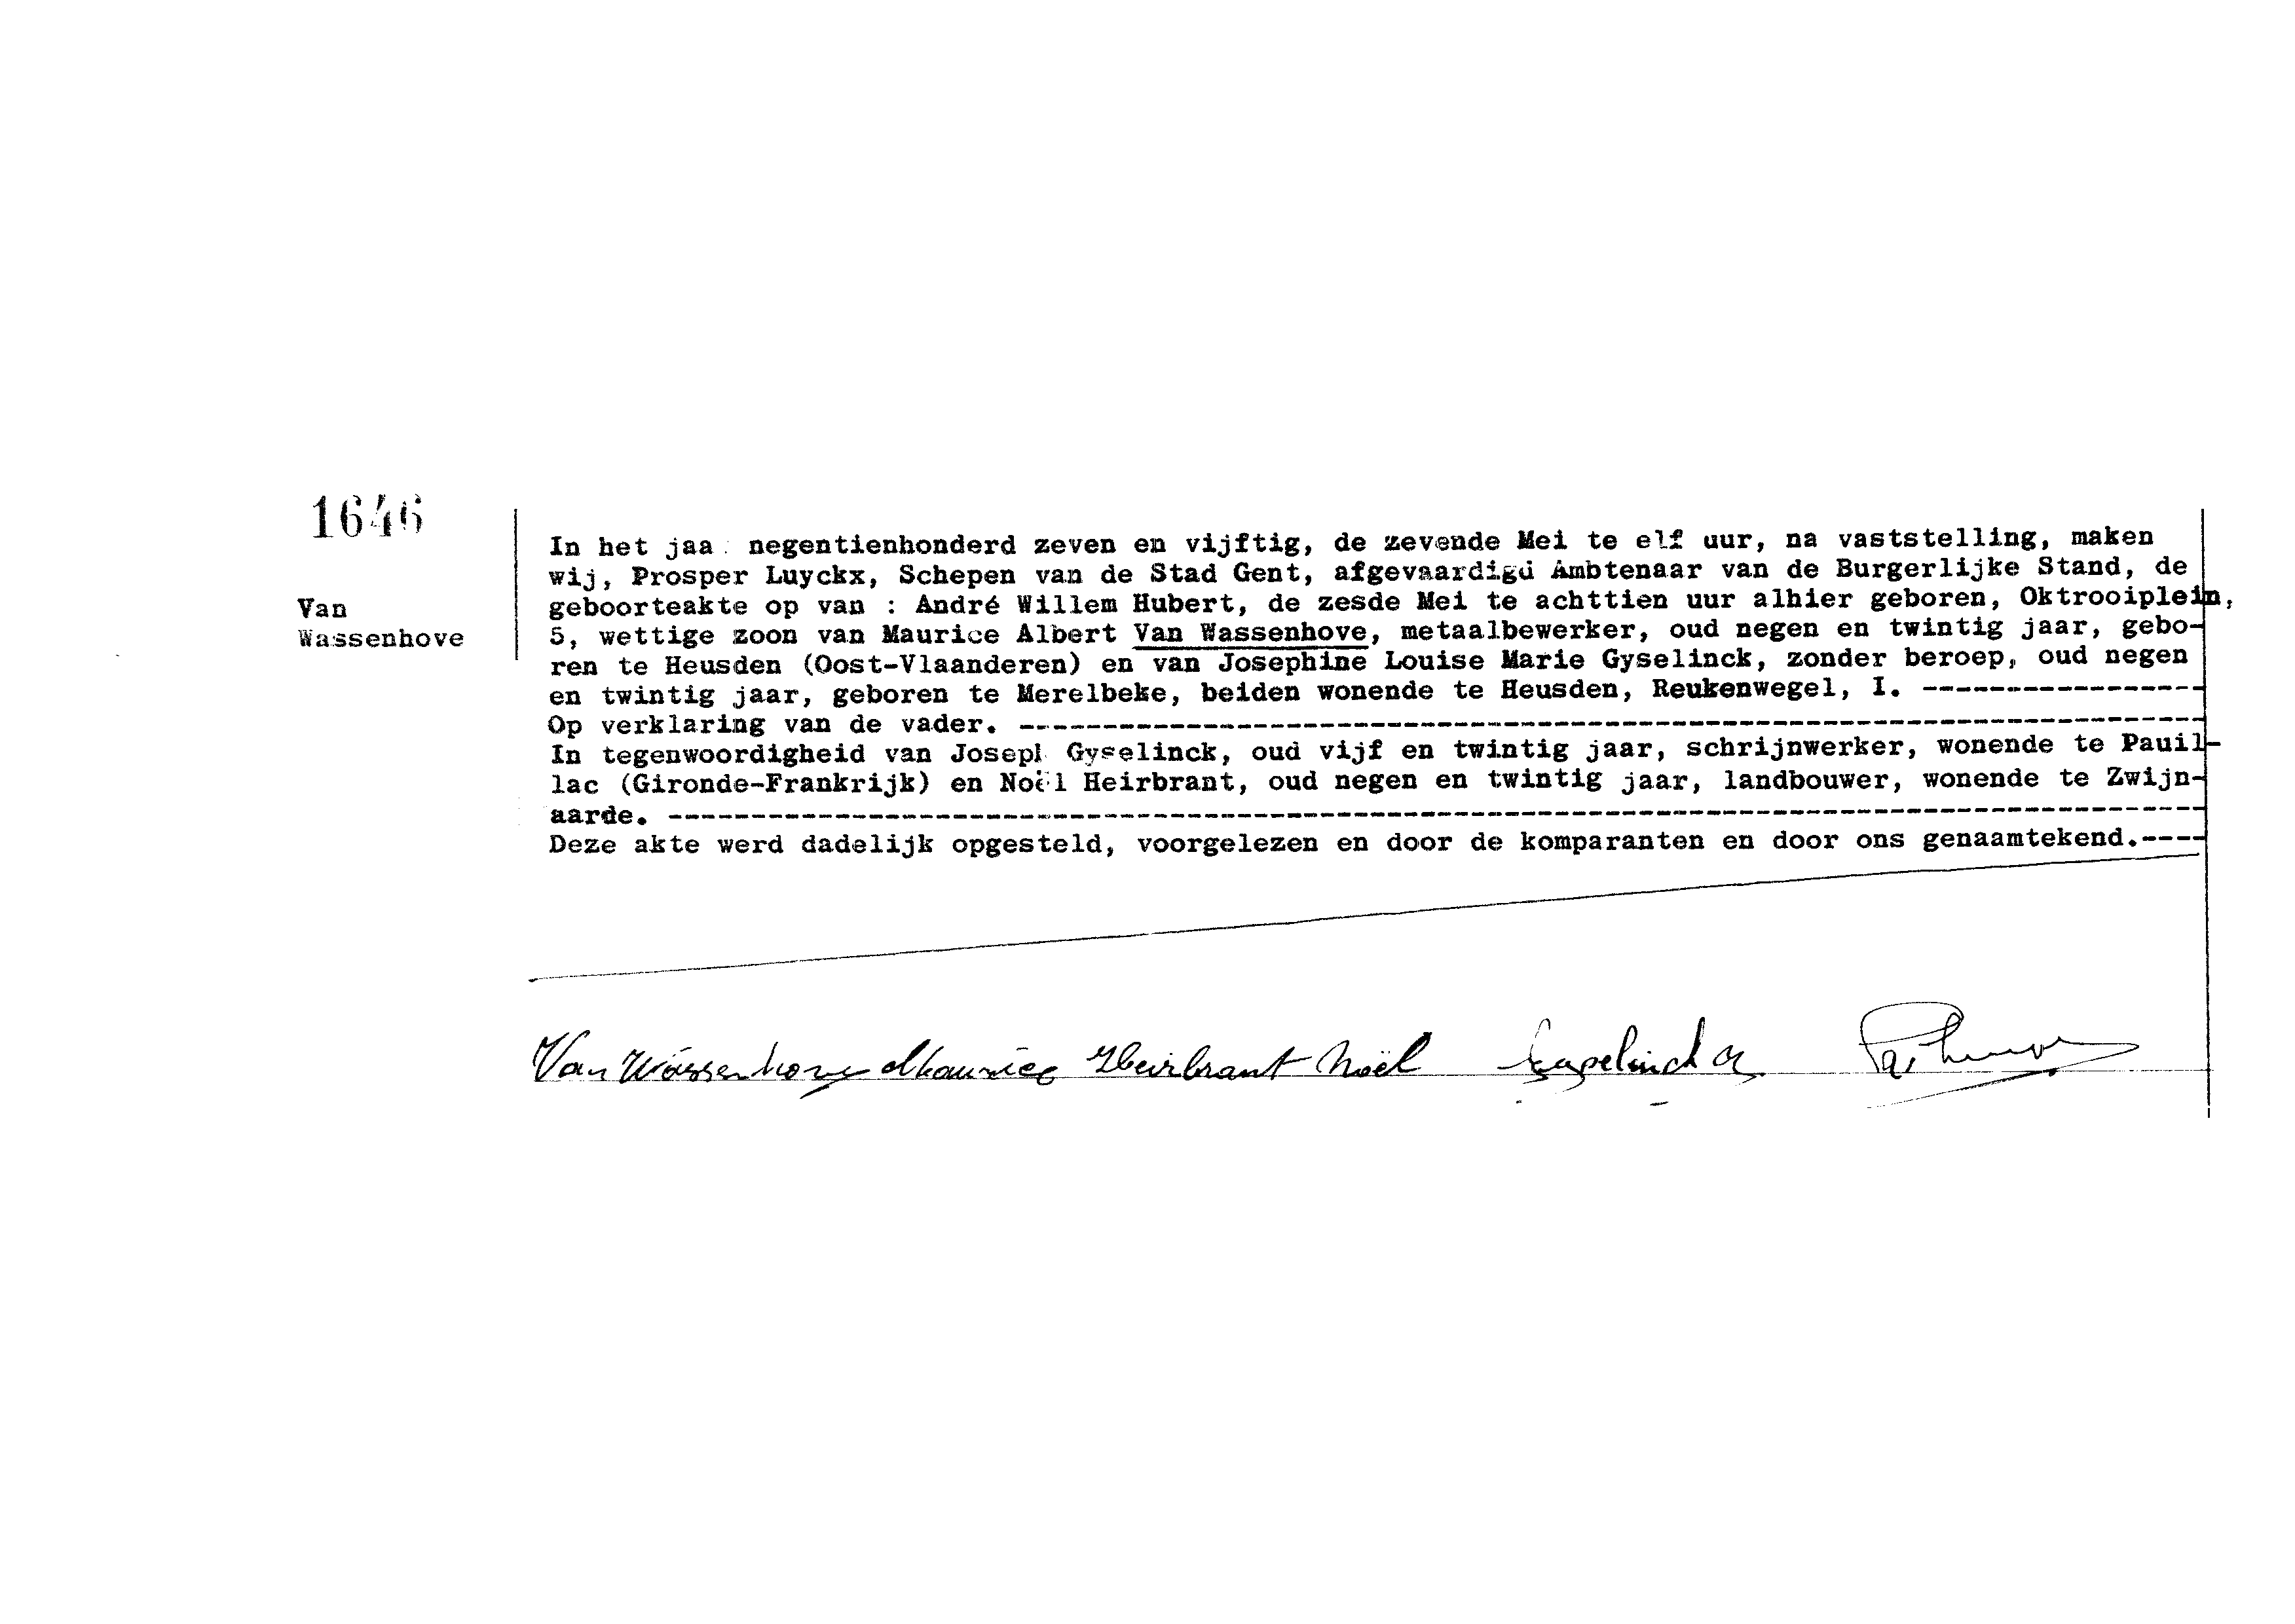 1646
Van
Wassenhove
In het jaa negentienhonderd zeven en vijftig, de zevende Mei te elf uur, na vaststelling, maken
wij, Prosper Luyckx, Schepen van de Stad Gent, afgevaardigd Ambtenaar van de Burgerlijke Stand, de
geboorteakte op van : André Willem Hubert, de zesde Mei te achttien uur alhier geboren, Oktrooiplein,
5, wettige zoon van Maurice Albert Van Wassenhove, metaalbewerker, oud negen en twintig jaar, gebo-
ren te Heusden (Oost-Vlaanderen) en van Josephine Louise Marie Gyselinck, zonder beroep, oud negen
en twintig jaar, geboren te Merelbeke, beiden wonende te Heusden, Reukenwegel, I. -----------------
Op verklaring van de vader. ------------------------------------------------------------------------
In tegenwoordigheid van Joseph Gyselinck, oud vijf en twintig jaar, schrijnwerker, wonende te Pauil-
lac (Gironde-Frankrijk) en Noël Heirbrant, oud negen en twintig jaar, landbouwer, wonende te Zwijn-
aarde. ---------------------------------------------------------------------------------------------
Deze akte werd dadelijk opgesteld, voorgelezen en door de komparanten en door ons genaamtekend.----
Van Wassenhove Maurice Heirbrant Noël